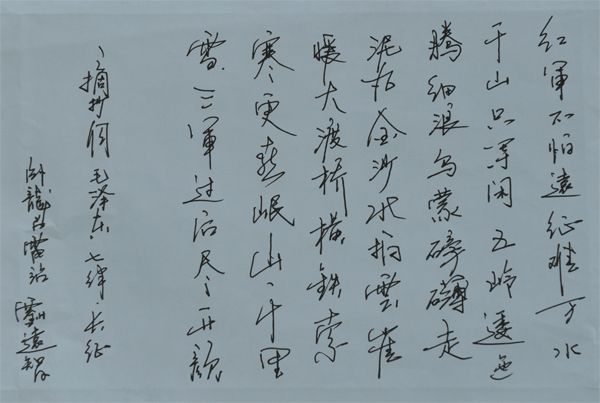 红軍不怕遠征难万水
千山只等闲五岭逶迤
腾细浪乌蒙磅礴走
泥丸金沙水拍雲崖
暖大渡桥横铁索
寒更喜岷山千里
雪三軍过后尽开颜
摘抄毛泽东七律·长征
卧龍遠智